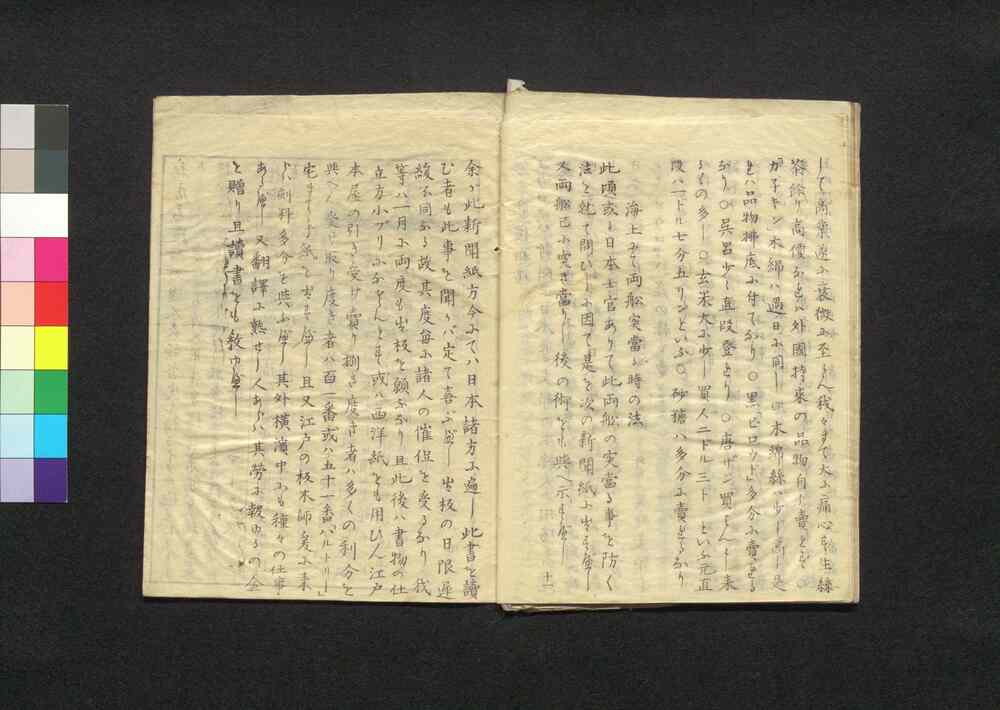 して商業遂に衰微に至らん我々まで大に痛心す生絲
余斗り高價なれ𪜈外國持来の品物自ら賣れず
カナキン木綿ハ過日に同し 木綿絲ハ少し高し是
とハ品物拂底に付てなり〇黒ビロウド多分に賣れる
なり〇呉呂少し直段登れり〇唐サン買もん〳〵し未
もの多し〇玄米大に少し買人二ドル三ト〳〵といふ元直
段ハ一ドル七分五リンといふ〇砂糖ハ多分に賣れるなり
海上にて両船突當る時の法
此頃或る日本士官ありて此両船の突當る事を防く
法を就て問ひしに因て是を次の新聞紙に出すべし
又両船已に突き當りし後の術をも共へ示すべし
十一
余か此新聞紙方今にてハ日本諸方に遍し此書を讀
む者も此事を聞かバ定て喜ぶべし出板の日限遅
緩不同なる故其度毎に諸人の催促を受るなり我
等ハ一月に両度も出板を願ふなり且此後ハ書物の仕
立方小ブリになさんとす或ハ西洋紙をも用ひん江戸
本屋の引き受け賣り捌き度き者ハ多くの利分を
與へん 受け取り度き者ハ百一番或ハ五十一番バルトリー
宅まて手紙を出すべし且又江戸の板木師爰に来
らバ 剞料多分を與ふべし其外横濱中にも種々の仕事
あるべし又翻譯に熟せし人あらバ其労に報ゆるの金
を贈り且讀書をも教ゆべし